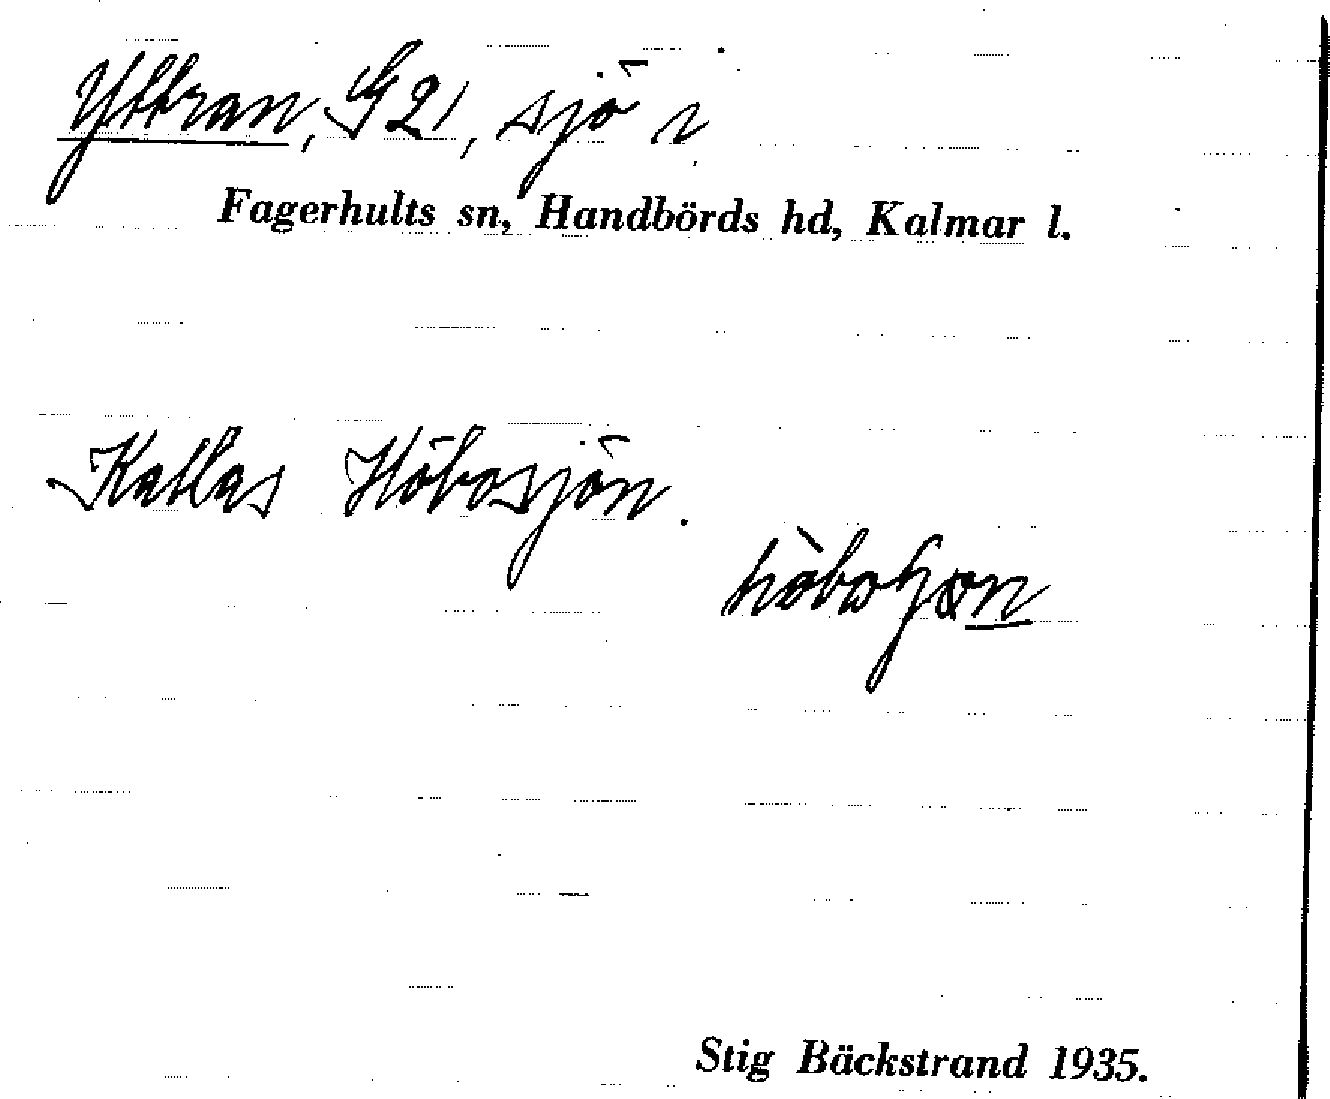 Yttran, G21, sjö i
Fagerhults sn, Handbörds hd, Kalmar l.
Kallas Höbosjön.
Stig Bäckstrand 1935.